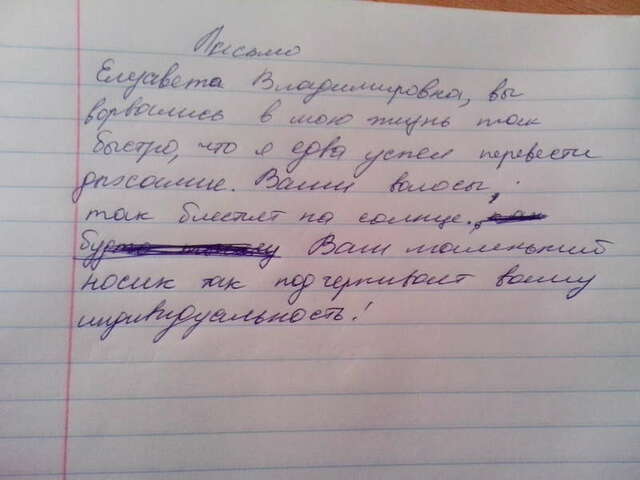 Письмо
Елизавета Владимировна, вы
ворвались в мою жизнь так
быстро, что я едва успел перевести
дыхание. Ваши волосы,
так блестят на солнце.
Ваш маленький
носик так подчеркивает вашу
индивидуальность!